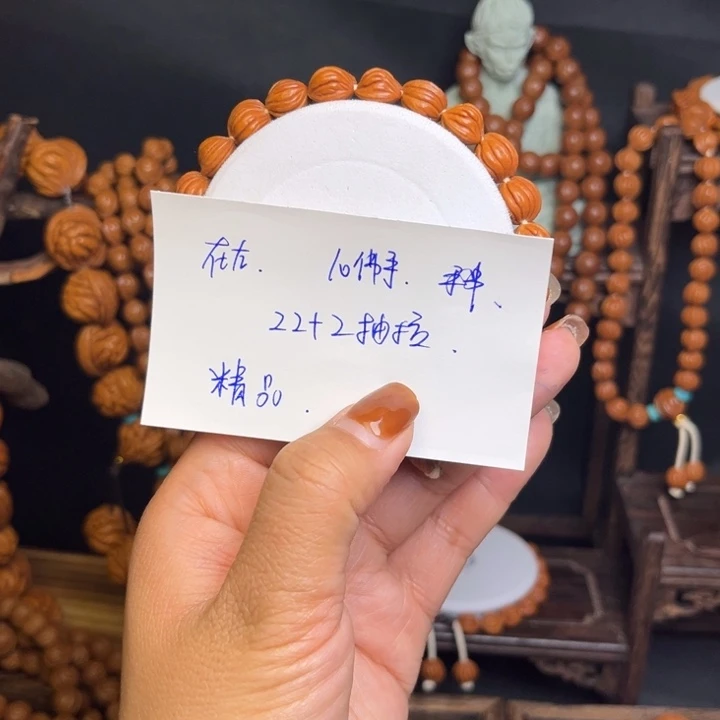 在左. 10佛手.
22+2抽拉.
精品.